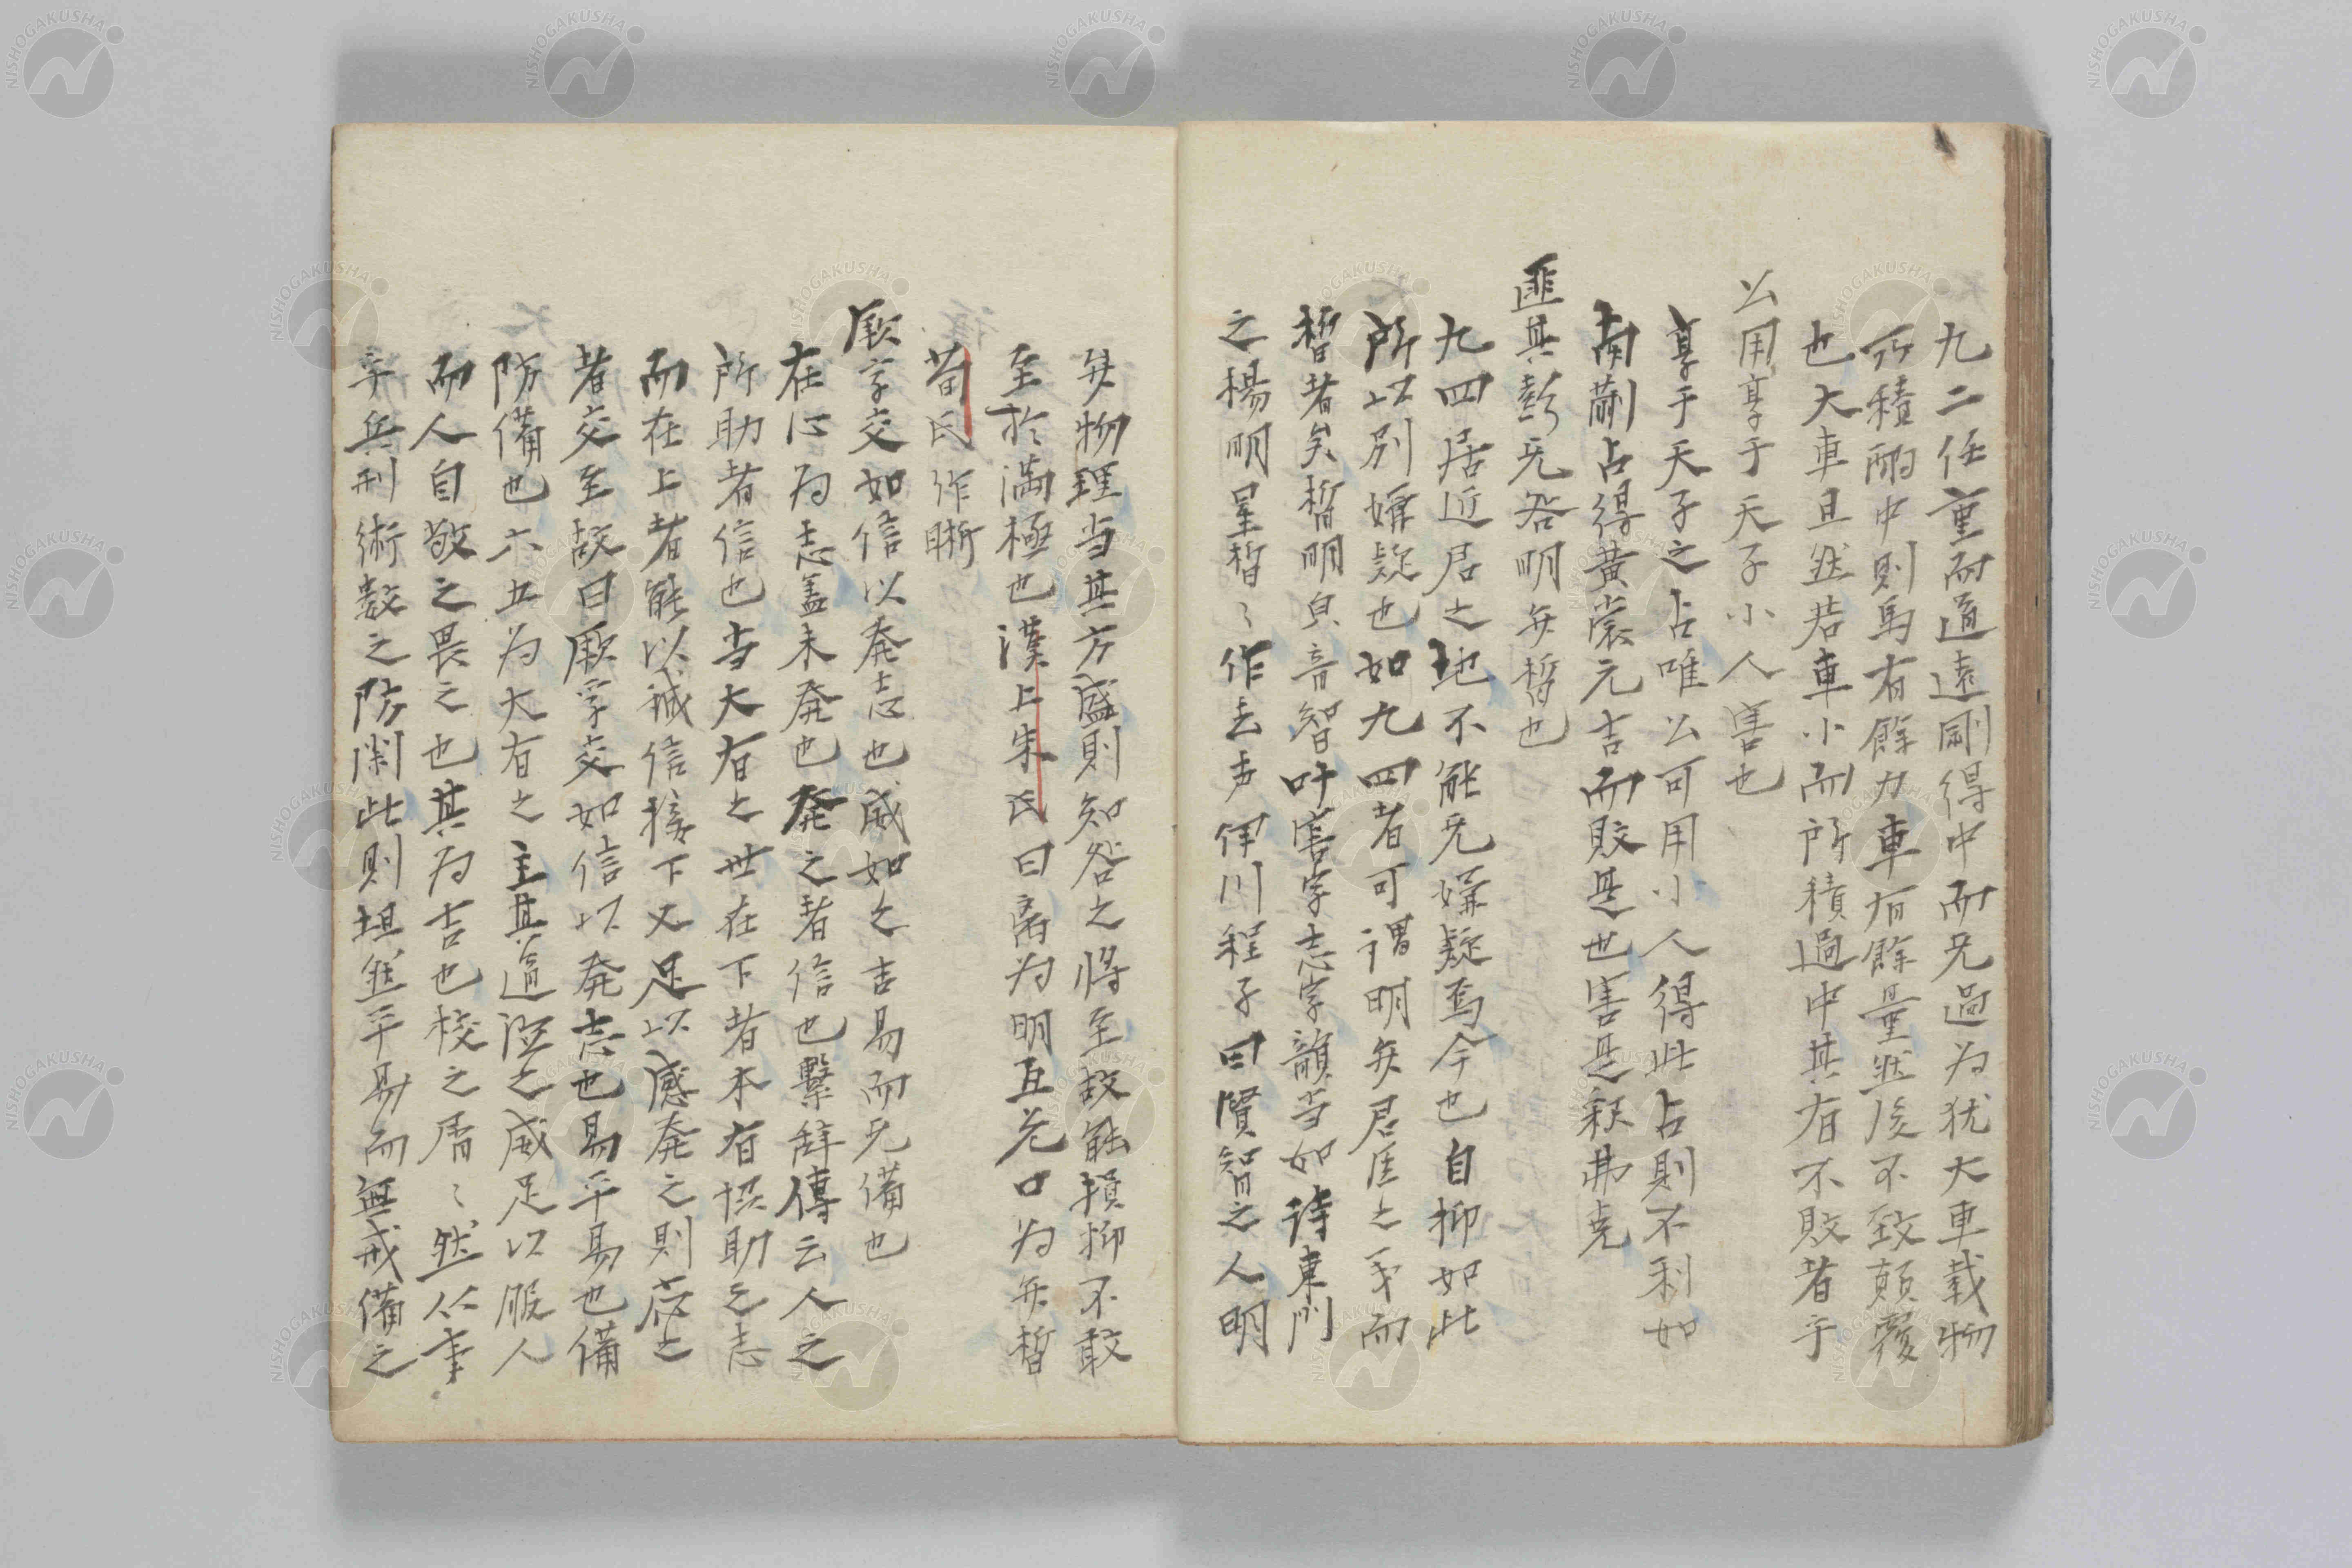 九二任重而道遠剛得中而无過為犹大車載物
所積砌中則馬有餘力車有餘量然後不致顛覆
也大車且然若車小而所積過中其有不敗者乎
公用享于天子小人害也
享于天子之占唯公可用小人得此占則不利如
南蒯占得黃裳元吉而敗是也害是釈弗克
匪其彭无咎明弁晳也
九四居近君之地不能无嫌疑焉今也自抑如此
所以別嫌疑也如九四者可謂明矣君臣之乎而
晳者矣晳明皃音智叶害字志字韻当如詩東門
之楊明星晳〻作去声伊川程子曰賢智之人明
弁物理当其方盛則知咎之將至故能損抑不敢
至於満極也漢上朱氏曰离为明互兌口为弁晳
荀氏作晣
厥孚交如信以発志也威如之吉易而无備也
在心为志蓋未発也発之者信也繫辞傳云人之
所助者信也当大有之世在下者本有悮助之志
而在上者能以誠信接下又足以感発之則応之
者交至故曰厥孚交如信以発志也易平易也備
防備也六五为大有之主其道徳之威足以服人
而人自敬之畏之也其为吉也校之屑〻然从事
乎兵刑術数之防閑此則坦然平易而無戒備之
NISHOGAKUSHA